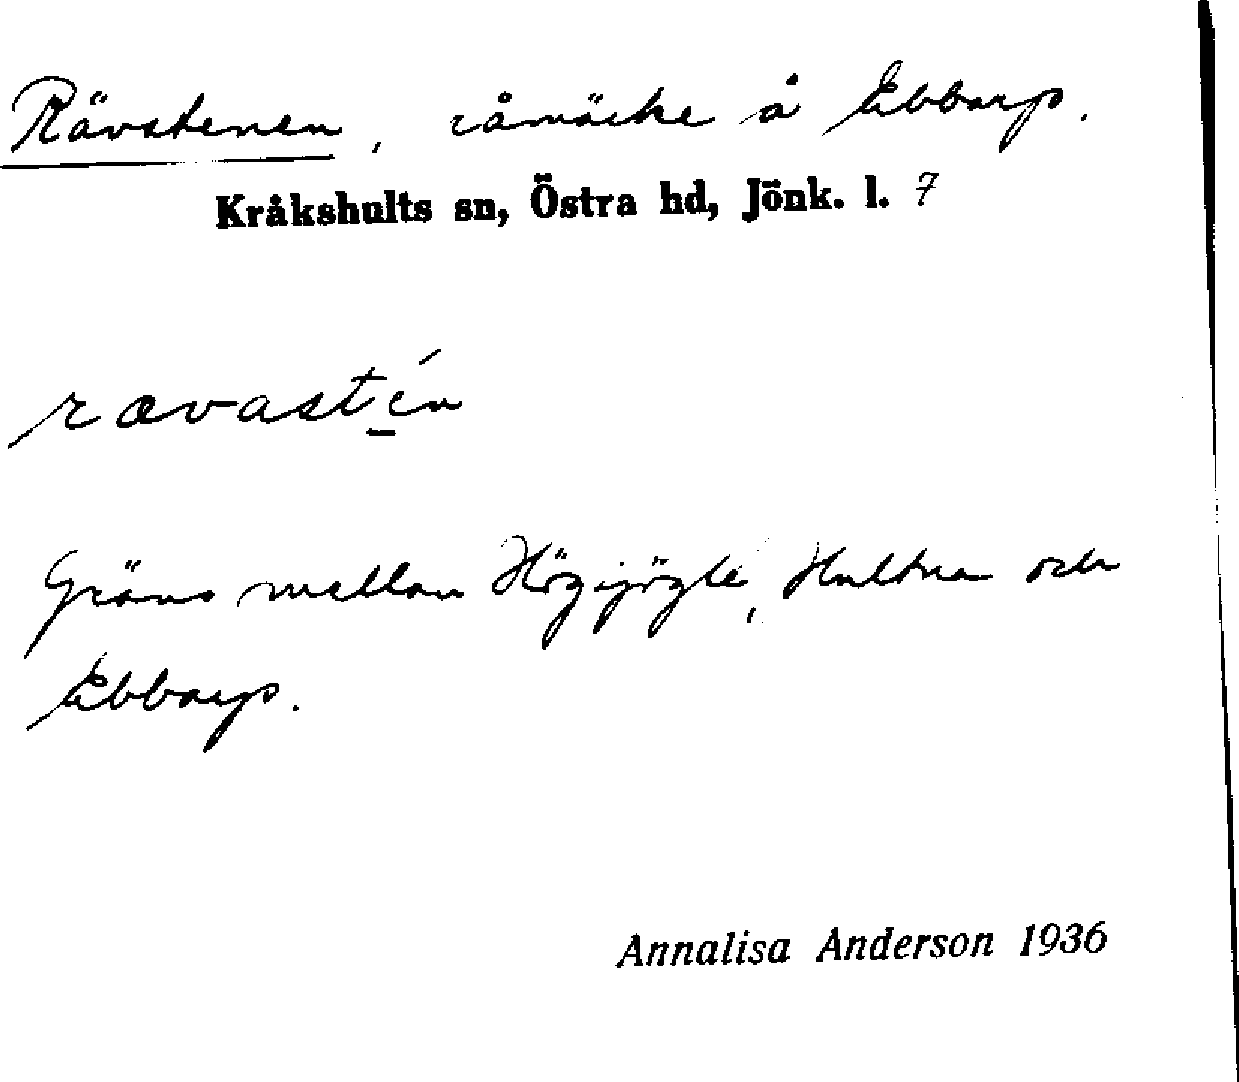 Rävstenen, råmärke å Ebbarp.
Kråkshults sn, Östra hd, Jönk. l. 7
rævastén
Gräns mellan Höghögle, Hultna och
Ebbarp.
Annalisa Anderson 1936